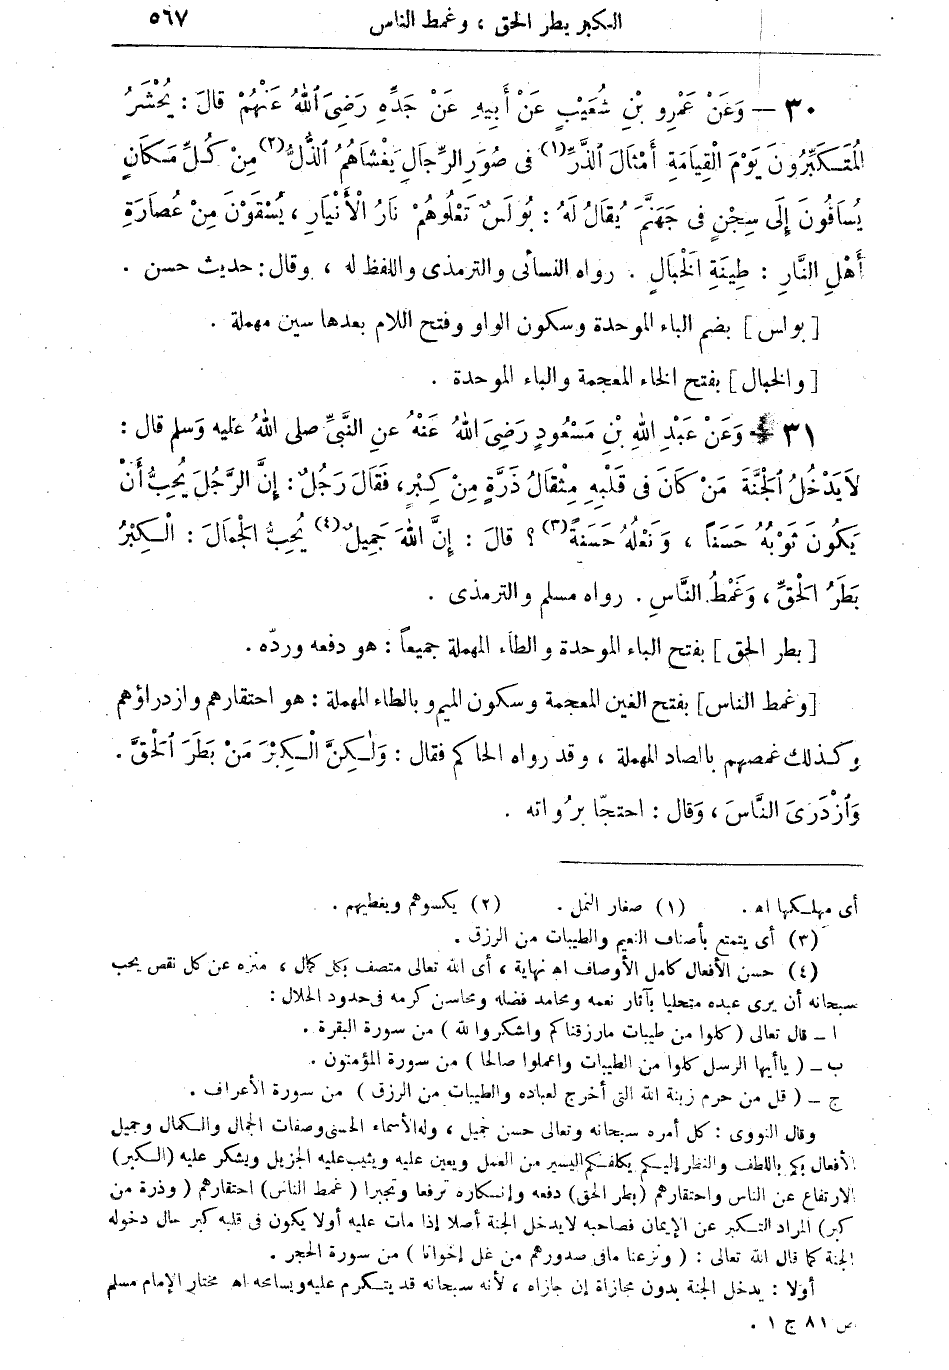 الكبر بطر الحق ، وغمط الناس ٥٦٧
٣٠ — وَعَنْ عَمْرِو بْنِ شُعَيْبٍ عَنْ أَبِيهِ عَنْ جَدِّهِ رَضِيَ اللهُ عَنْهُمْ قَالَ : يُحْشَرُ
الْمُتَكَبِّرُونَ يَوْمَ الْقِيَامَةِ أَمْثَالَ الذَّرِّ (١) فى صُوَرِ الرِّجَالِ يَغْشَاهُمُ الذُّلُّ (٢) مِنْ كُلِّ مَكَانٍ
يُسَاقُونَ إِلَى سِجْنٍ فى جَهَنَّمَ يُقَالُ لَهُ : بُولَسُ تَعْلُوهُمْ نَارُ الْأَنْيَارِ ، يُسْقَوْنَ مِنْ عُصَارَةِ
أَهْلِ النَّارِ : طِينَةِ الْخَبَالِ . رواه النسائى والترمذى واللفظ له ، وقال : حديث حسن .
[ بولس ] بضم الباء الموحدة وسكون الواو وفتح اللام بعدها سين مهملة .
[ والخبال ] بفتح الخاء المعجمة والباء الموحدة .
٣١ — وَعَنْ عَبْدِ اللهِ بْنِ مَسْعُودٍ رَضِيَ اللهُ عَنْهُ عنِ النَّبِيِّ صلى اللهُ عليه وَسلم قال :
لاَ يَدْخُلُ الْجَنَّةَ مَنْ كَانَ فى قَلْبِهِ مِثْقَالُ ذَرَّةٍ مِنْ كِبْرٍ ، فَقَالَ رَجُلٌ : إِنَّ الرَّجُلَ يُحِبُّ أَنْ
يَكُونَ ثَوْبُهُ حَسَناً ، وَنَعْلُهُ حَسَنَةً (٣) ؟ قالَ : إِنَّ اللهَ جَمِيلٌ (٤) يُحِبُّ الْجَمَالَ : الْكِبْرُ
بَطَرُ الْحَقِّ ، وَغَمْطُ النَّاسِ . رواه مسلم والترمذى .
[ بطر الحق ] بفتح الباء الموحدة والطاء المهملة جميعاً : هو دفعه وردّه .
[ وغمط الناس ] بفتح الغين المعجمة وسكون الميم و بالطاء المهملة : هو احتقارهم وازدراؤهم
وكذلك غمصهم بالصاد المهملة ، وقد رواه الحاكم فقال : وَلٰكِنَّ الْكِبْرَ مَنْ بَطَرَ الْحَقَّ .
وَازْدَرَى النَّاسَ ، وَقال : احتجّا برُواته .
أى مهلكها اه . (١) صغار النمل . (٢) يكسوهم ويغطيهم .
(٣) أى يتمتع بأصناف النعيم والطيبات من الرزق .
(٤) حسن الأفعال كامل الأوصاف اه نهاية ، أى الله تعالى متصف بكل كمال ، منزه عن كل نقص يحب
سبحانه أن يرى عبده متحليا بآثار نعمه ومحامد فضله ومحاسن كرمه فى حدود الحلال :
ا — قال تعالى ( كلوا من طيبات مارزقناكم واشكروا لله ) من سورة البقرة .
ب — ( ياأيها الرسل كلوا من الطيبات واعملوا صالحا ) من سورة المؤمنون .
ج — ( قل من حرم زينة الله التى أخرج لعباده والطيبات من الرزق ) من سورة الأعراف .
وقال النووى : كل أمره سبحانه وتعالى حسن جميل ، وله الأسماء الحسنى وصفات الجمال والكمال وجميل
الأفعال بكم باللطف والنظر إليكم يكلفكم اليسير من العمل ويعين عليه ويثيب عليه الجزيل ويشكر عليه (الكبر)
الارتفاع عن الناس واحتقارهم (بطر الحق) دفعه وإنكاره ترفعا وتجبرا ( غمط الناس) احتقارهم ( وذرة من
كبر) المراد التكبر عن الإيمان فصاحبه لايدخل الجنة أصلا إذا مات عليه أولا يكون فى قلبه كبر حال دخوله
الجنة كما قال الله تعالى : ( ونزعنا مافى صدورهم من غل إخوانا ) من سورة الحجر .
أولا : يدخل الجنة بدون مجازاة إن جازاه ، لأنه سبحانه قد يتكرم عليه ويسامحه اه مختار الإمام مسلم
ص ٨١ ج ١ .